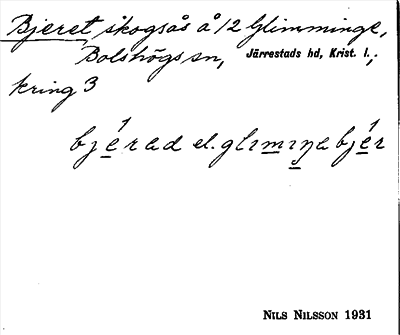 Bjeret skogsås å 12 Glimminge,
Bolshögs sn, Järrestads hd, Krist. l.;
kring 3
bjérad el. glımıŋabjér
Nils Nilsson 1931